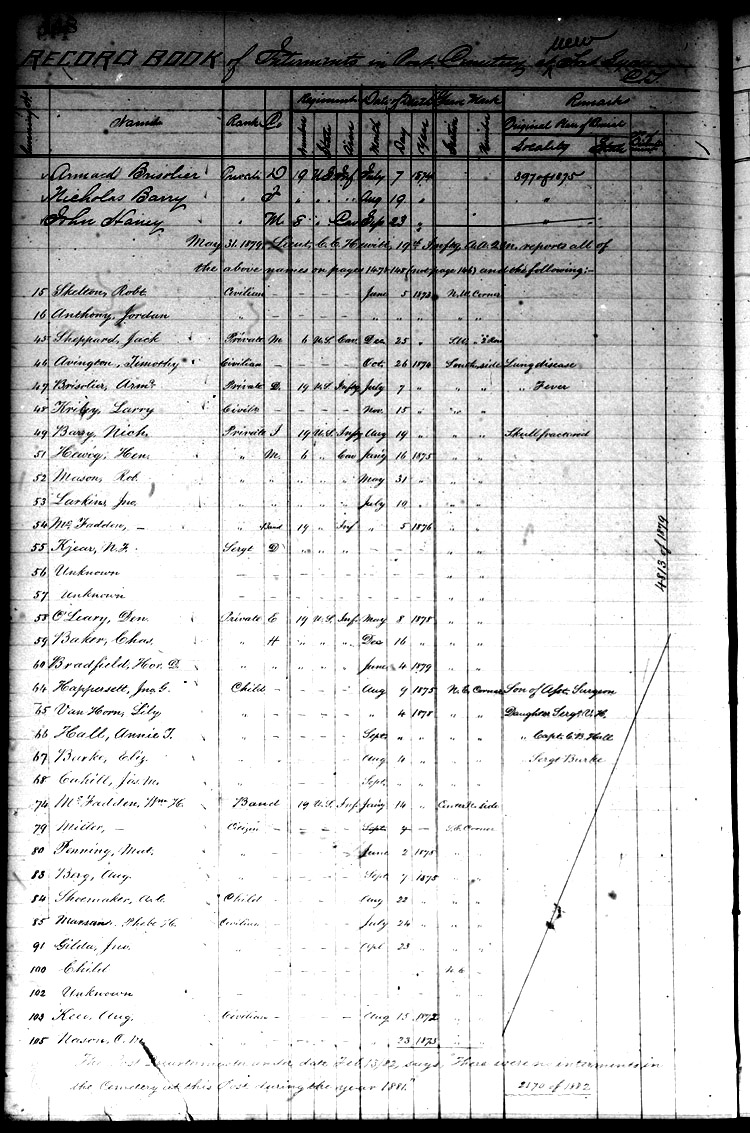 RECORD BOOK of Interments in Post Cemetery at new Fort Lyon
C.T.
Regiment Date of Death Grave Mark Remarks
Name Rank Co Number State Arm Month Day Year Section Number Original Place of Burial
Locality State
Armand Brisolier Private D 19 U.S. Inf July 7 1874 397 of 1875
Nicholas Barry " I " " " Aug 19 " "
John Haney " M 8 " Cav Sep 23 " "
May 31. 1879, Lieut. C. C. Hewitt, 19th Infty, A.A.Q.M. reports all of
the above names on pages 147 & 148 (not page 146) and the following:-
15 Skelton, Robt. Civilian – – – – June 5 1873 N.W. Corner
16 Anthony, Jordan " – – – – " " " " "
45 Sheppard, Jack Private M 6 U.S. Cav Dec 25 " S.W. "
46 Avington, Timothy Civilian – – – – Oct. 26 1874 South side Lung disease
47 Brisolier, Armd. Private D. 19 U.S. Infty July 7 " " " " Fever
48 Kriley, Larry Civiln – – – – Nov. 15 " " "
49 Barry, Nich. Private I 19 U.S. Infty Aug 19 " " " Skull fractured
51 Hewig, Hen. " M. 6 " Cav Jany 16 1875 " "
52 Mason, Rot. " " " " " May 31 " " "
53 Larkins, Jno. " " " " " July 10 " " "
54 McFadden, – " Band 19 " Inf " 5 1876 " "
55 Kjear, N.F. Sergt D " " " – – – " "
56 Unknown – – – – – – – – " "
57 Unknown – – – – – – – – " "
58 O'Leary, Den. Private E 19 U.S. Inf. May 8 1878 " "
59 Baker, Chas. " H " " " Dec 16 " " "
60 Bradfield, Hor. D. " " " " " June 4 1879 " "
64 Happersett, Jno. G. Child – – – – Aug 9 1875 N.E. Corner Son of Asst. Surgeon
65 Van Horn, Lily " – – – – " 4 1878 " " Daughter Sergt V.H.
66 Hall, Annie T. " – – – – Sept. " " " " " Capt. C.B. Hall
67 Burke, Eliz. " – – – – Aug 4 " " " Sergt Burke
68 Cahill, Jas. M. " – – – – Sept. " " " "
74 McFadden, Wm. H. Band 19 U.S. Inf. Jany 14 " Center E. side
79 Miller, – Citizen – – – – Sept. 9 – S.E. Corner
80 Penning, Mat. " – – – – June 2 1875 " "
83 Berg, Aug. " – – – – Sept 7 1875 " "
84 Shoemaker, A.C. Child – – – – Aug 22 " " "
85 Marsan, Phebe H. Civilian – – – – July 24 " " "
91 Gilda, Jno. " – – – – Apl. 23 " " "
100 Child – – – – – – – – N.E.
102 Unknown – – – – – – – – " "
103 Kee, Aug. Civilian – – – – Aug 15 1872 " "
105 Nason, O.M. " – – – – " 23 1873 " "
4813 of 1879
The Post Quartermaster under date Feb. 13/82, says, "There were no interments in
the Cemetery at this Post during the year 1881."
2170 of 1882